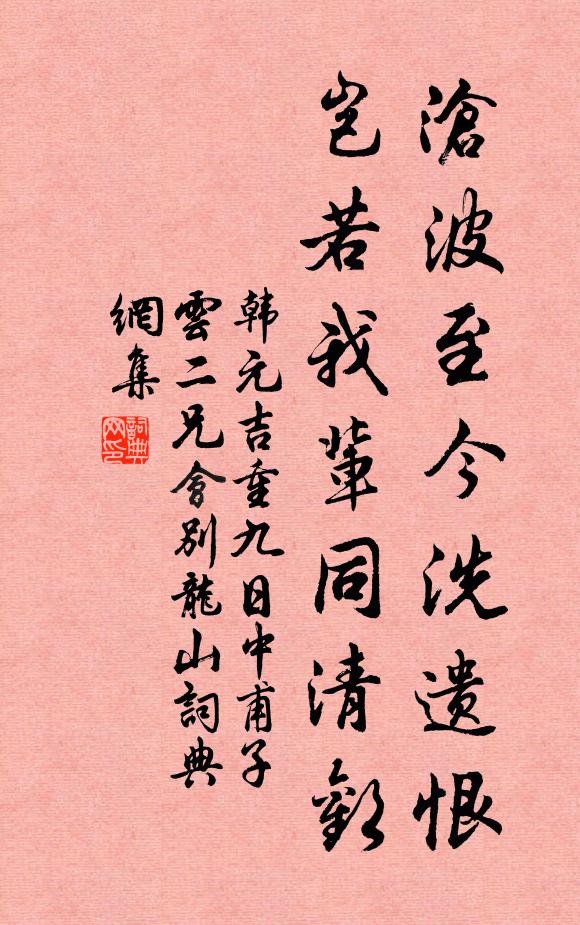 滄波至今洗遗恨
岂若我輩同清歡
韩元吉重九日中甫子
雲二兄會别龍山詞典
網集
詞典
网印